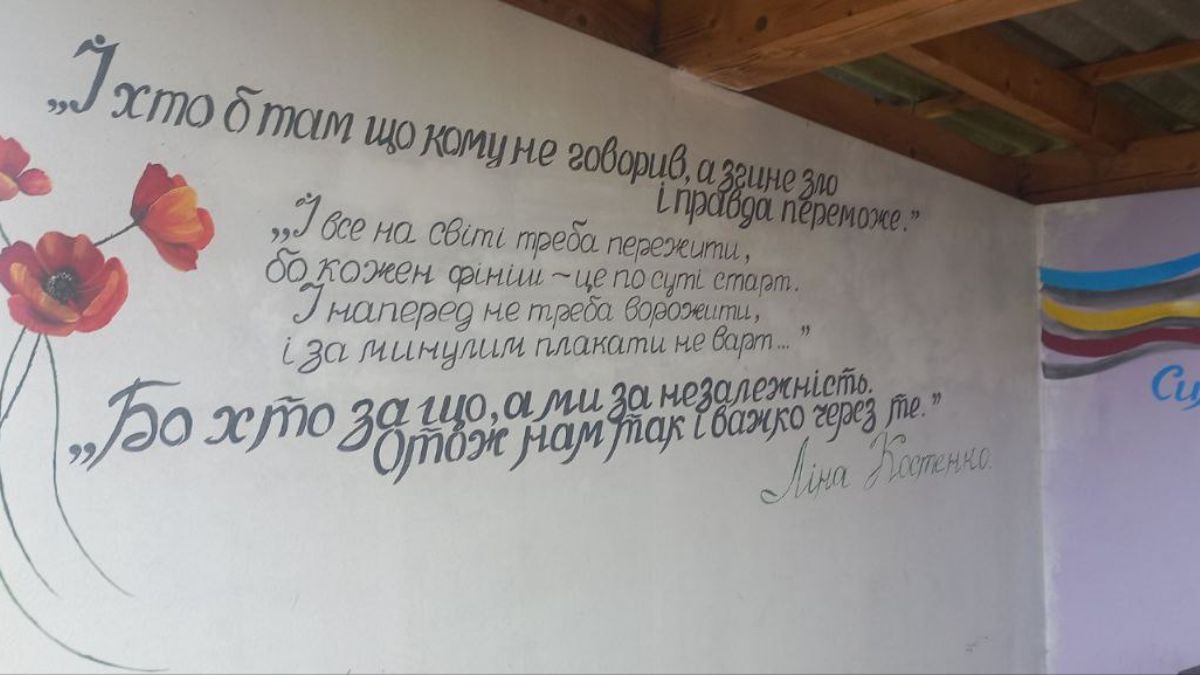 „І хто б там що кому не говорив, а згине зло
і правда переможе.”
„І все на світі треба пережити,
бо кожен фініш ~ це по суті старт.
І наперед не треба ворожити,
і за минулим плакати не варт...”
„Бо хто за що, а ми за незалежність.
Отож нам так і важко через те.”
Ліна Костенко.